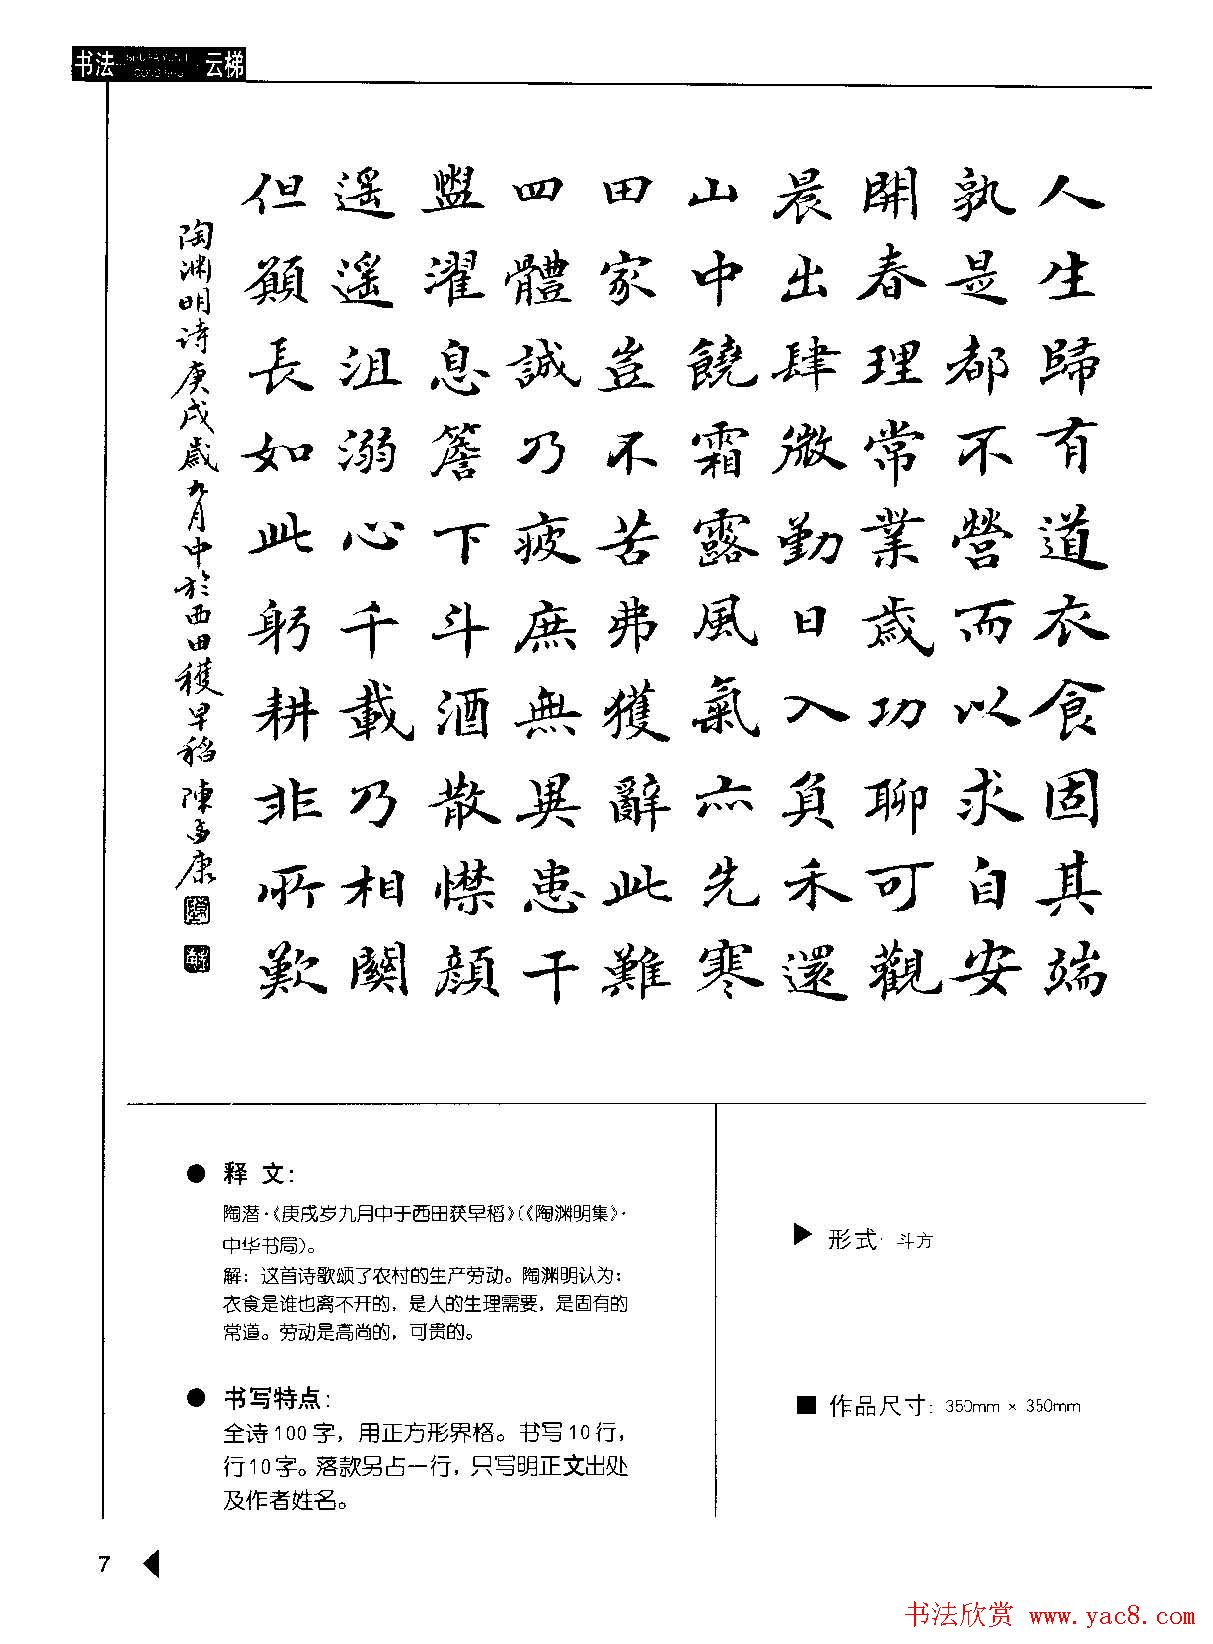 书法 云梯
人生歸有道衣食固其端
孰是都不營而以求自安
開春理常業歲功聊可觀
晨出肆微勤日入負禾還
山中饒霜露風氣亦先寒
田家豈不苦弗獲辭此難
四體誠乃疲庶無異患干
盥濯息簷下斗酒散襟顏
遙遙沮溺心千載乃相關
但願長如此躬耕非所歎
陶渊明诗庚戌歲九月中於西田穫早稻 陳康
● 释 文：
陶潜·《庚戌岁九月中于西田获早稻》(《陶渊明集》·
中华书局)。
解：这首诗歌颂了农村的生产劳动。陶渊明认为：
衣食是谁也离不开的，是人的生理需要，是固有的
常道。劳动是高尚的，可贵的。
● 书写特点：
全诗100字，用正方形界格。书写10行，
行10字。落款另占一行，只写明正文出处
及作者姓名。
▶ 形式· 斗方
■ 作品尺寸：350mm × 350mm
7 ◀
书法欣赏 www.yac8.com